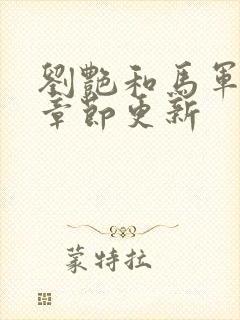 劉艷和馬軍
章節更新
蒙特拉